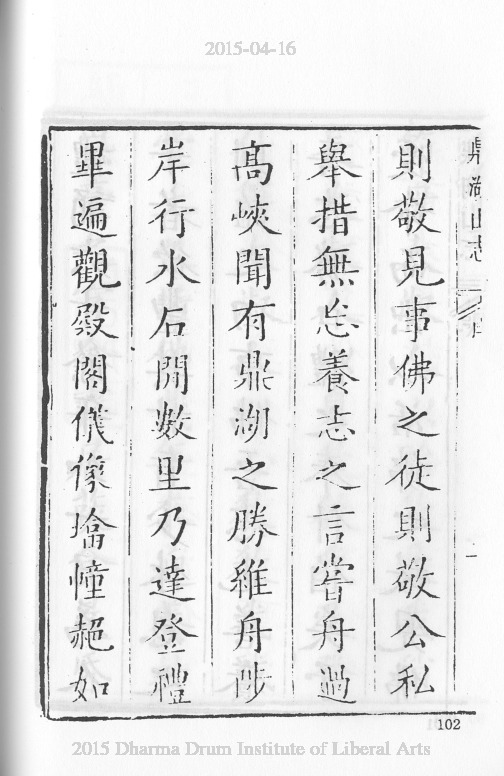 2015-04-16
鼎湖山志
則敬見事佛之徒則敬公私
舉措無忘養志之言嘗舟過
高峽聞有鼎湖之勝維舟陟
岸行水石間數里乃達登禮
畢遍觀殿閣儀像旛幢赩如
102
2015 Dharma Drum Institute of Liberal Arts